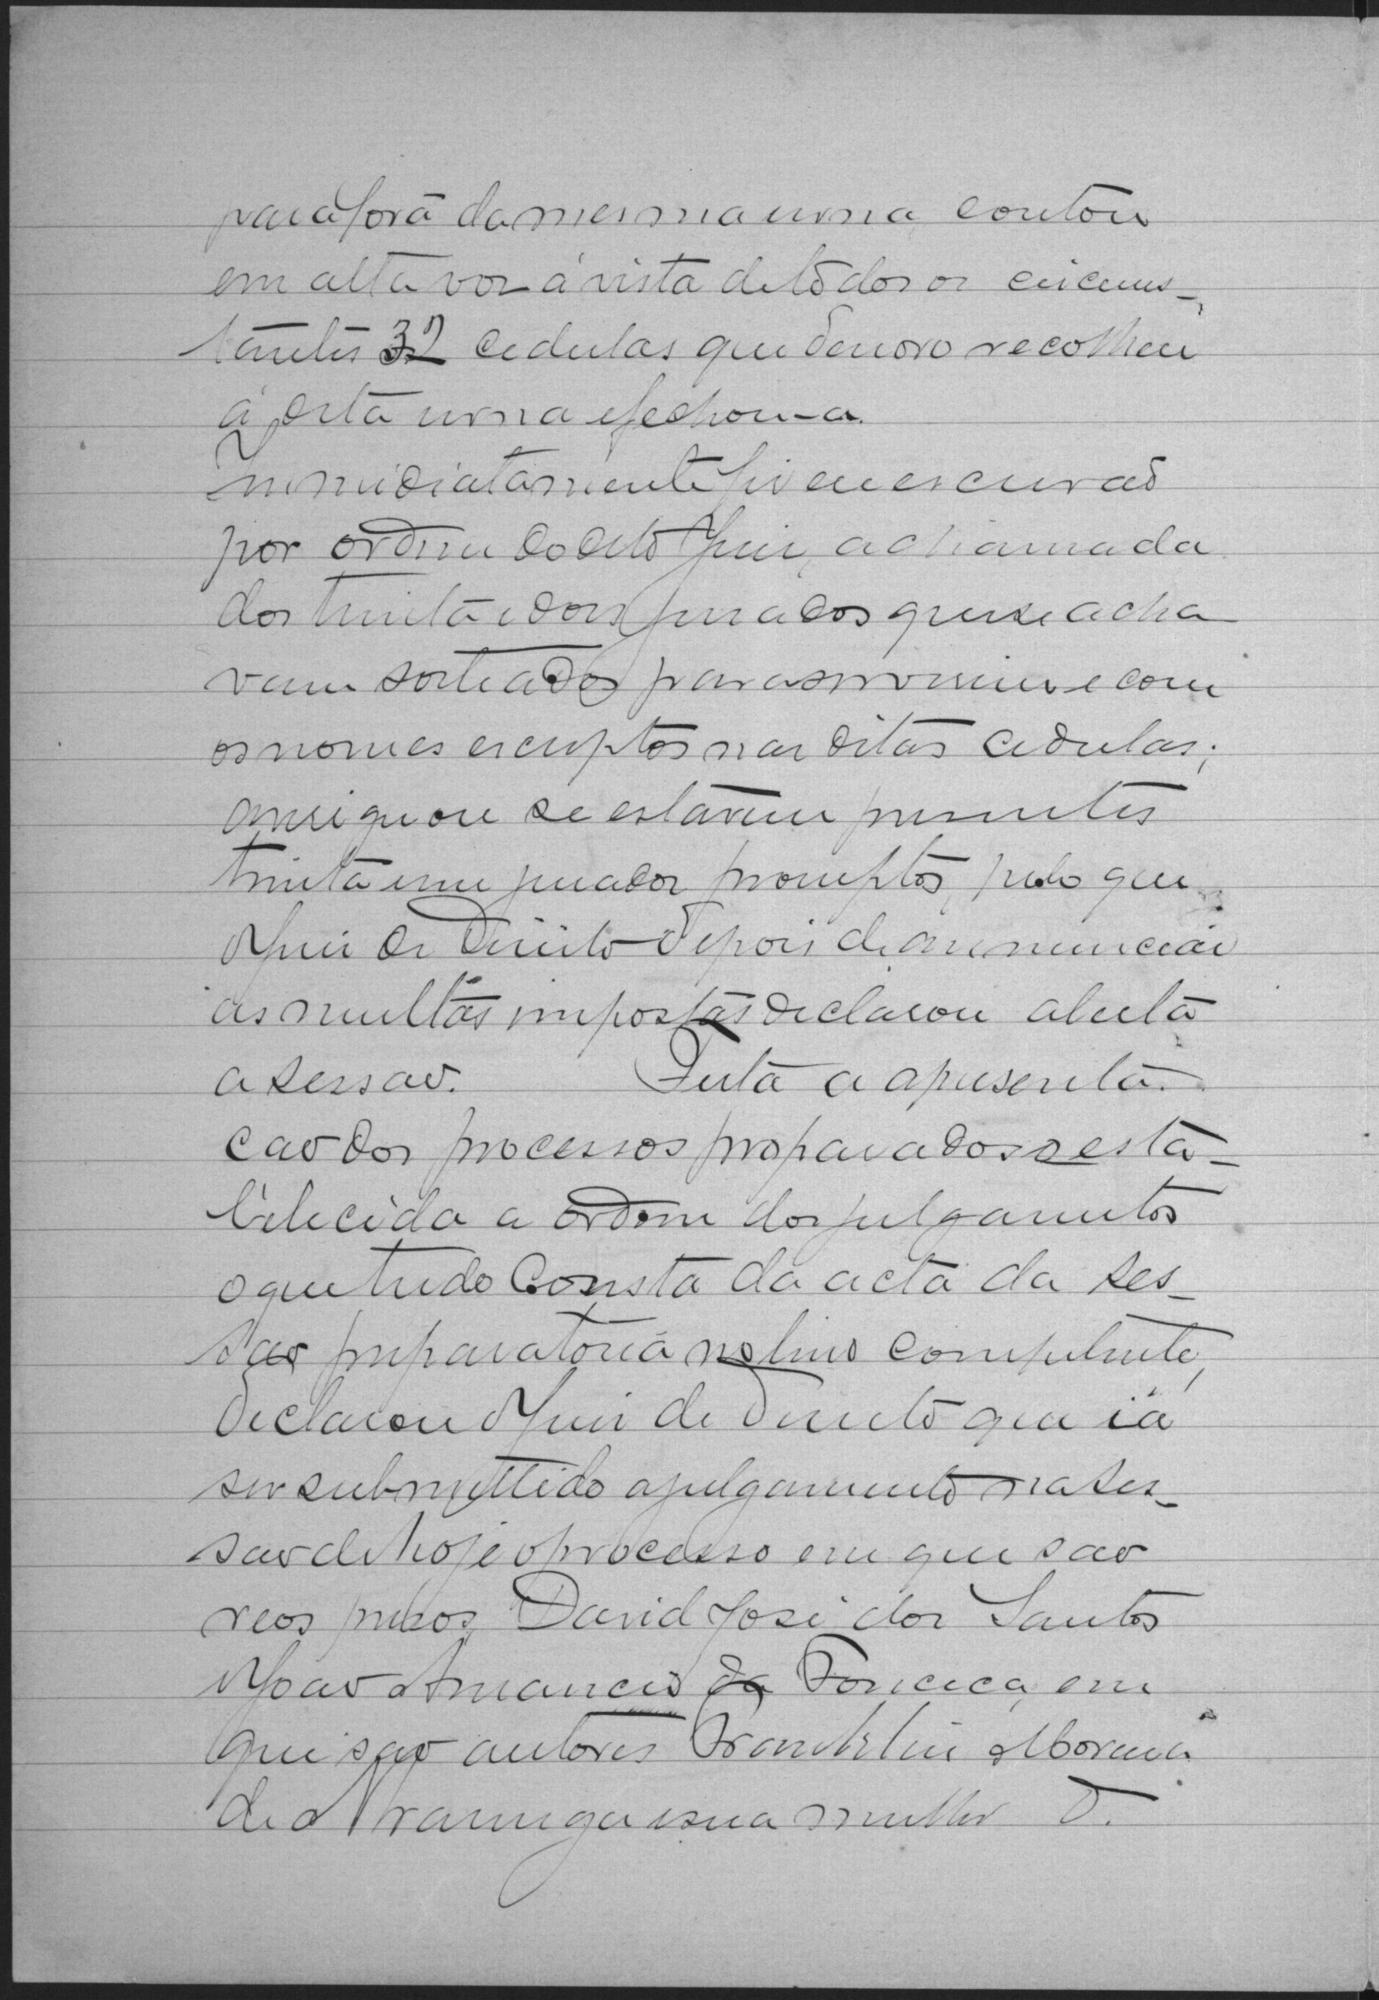 para fora da mesma urna, contou
em alta voz á vista de todos os circums-
tantes 32 cedulas que de novo recolheu
á dita urna e fechou-a.
Immidiatamente fiz eu escrivão
por ordem do dito Juiz, a chamada
dos trinta e dois jurados que se acha
vam sorteados para servirem e com
os nomes escriptos nas ditas cedulas;
averiguou se estarem presentes
trinta e um jurados promptos, pelo que
o Juiz de Direito depois de annunciar
as multas impostas declarou aberta
a sessao. Feita a apresenta-
cao dos processos preparados e esta-
bilecida a ordem dos julgamentos
o que tudo Consta da acta da ses-
sao preparatoria no livro competente,
declarou o Juiz de Direito que ia
ser submettido a julgamento na ses-
sao de hoje o processo em que sao
reos presos, David José dos Santos
e Joao Amancio da Fonceca, em
que sao autores Franklin Moreira
de e sua mulher D.